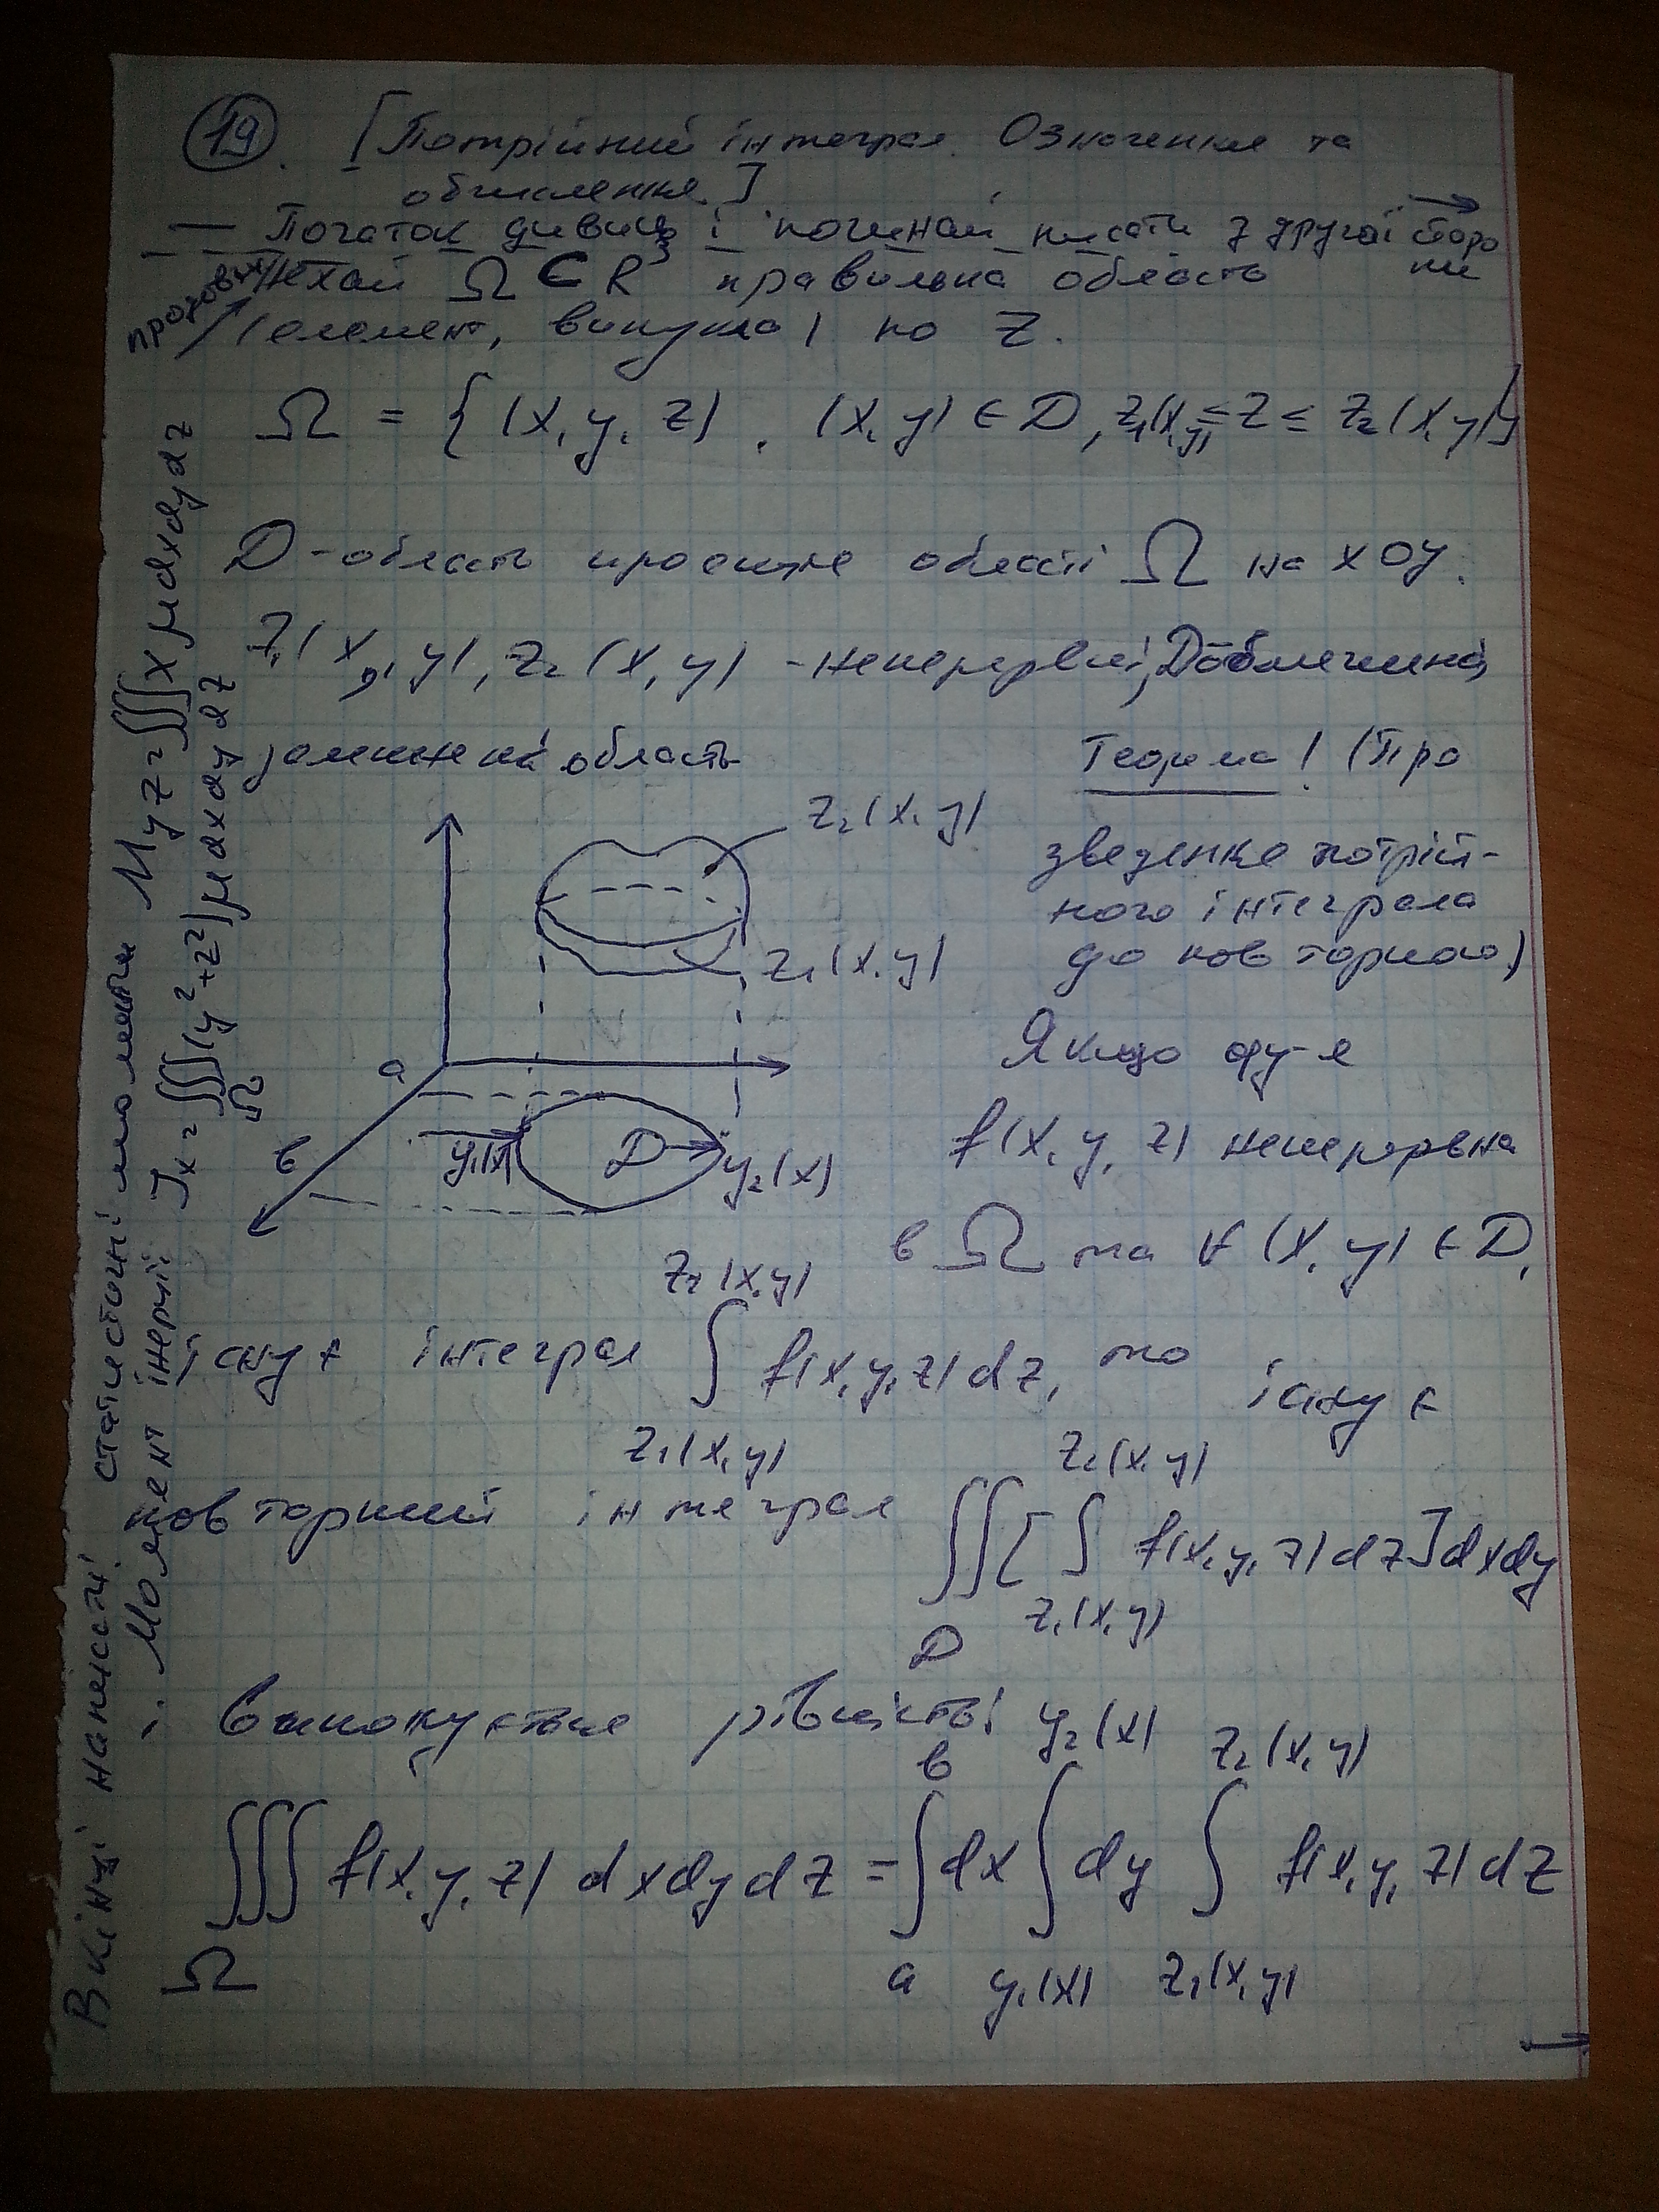 19. [Потрійний інтеграл. Означення та
обчислення.]
— Початок дивись і починай писати з другої сторо
ни
продовж
Нехай Ω ⊂ R³ правильна область
(елемент, випукла) по Z.
Ω = {(x, y, z), (x, y) ∈ D, z₁(x,y) ≤ z ≤ z₂(x, y)}
D - область проекція області Ω на xOy.
z₁(x, y), z₂(x, y) - неперервні, D обмежена,
замкнена область
Теорема! (Про
зведення потрій-
ного інтеграла
до повторного)
z₂(x, y)
z₁(x, y)
a
в
y₁(x)
D
y₂(x)
Якщо фу-я
f(x, y, z) неперервна
в Ω та ∀ (x, y) ∈ D,
існує інтеграл ∫ f(x, y, z) dz, то існує
z₂(x, y)
z₁(x, y)
повторний інтеграл ∬ [ ∫ f(x, y, z) dz] dxdy
D
z₂(x, y)
z₁(x, y)
виконується рівність
∭ f(x, y, z) dxdydz = ∫ dx ∫ dy ∫ f(x, y, z) dz
Ω
в y₂(x) z₂(x, y)
a y₁(x) z₁(x, y)
В кінці написати: статистичні моменти Myz = ∭ x μ dxdydz
Момент інерції: Jx = ∭ (y² + z²) μ dxdydz
Ω